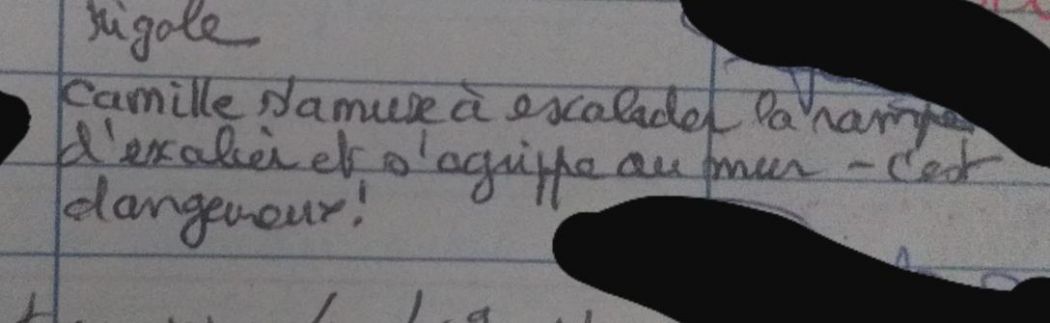 rigole
Camille s'amuse à escalader la rampe
d'exalier et s'agrippe au mur - c'est
dangeureux!